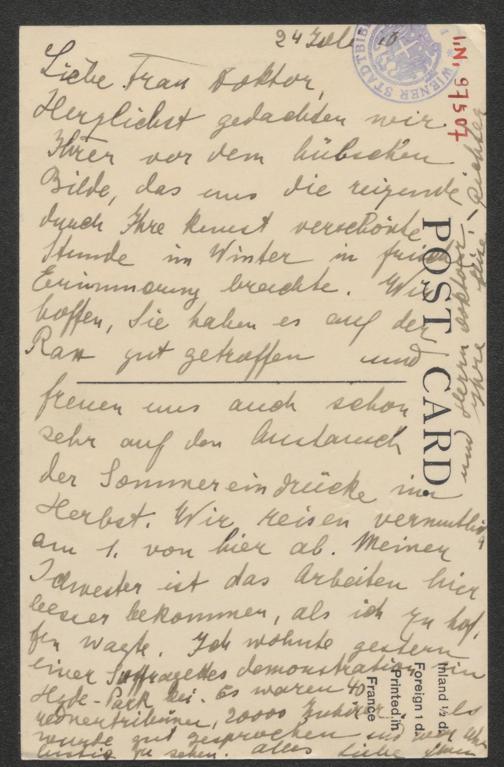 24 Juli 10
WIENER STADTBIBL
I.N. 97507
Liebe Frau Doktor,
Herzlichst gedachten wir
Ihrer vor dem hübschen
Bilde, das uns die reizende
durch Ihre Kunst verschönte
Stunde im Winter in frische
Erinnerung brachte. Wir
hoffen, Sie haben es auf der
Rax gut getroffen und
freuen uns auch schon
sehr auf den Austausch
der Sommereindrücke im
Herbst. Wir reisen vermutlich
am 1. von hier ab. Meiner
Schwester ist das Arbeiten hier
besser bekommen, als ich zu hof-
fen wagte. Ich wohnte gestern
einer Suffragettesdemonstration im
Hyde-Park bei. Es waren 40
rednertribünen, 20000 Zuhörer, als
wurde gut gesprochen und war
lustig zu sehen. Alles Liebe Ihnen
und Herrn Doktor!
Ihre
POST CARD
Inland ½ d.
Foreign 1 d.
Printed in
France